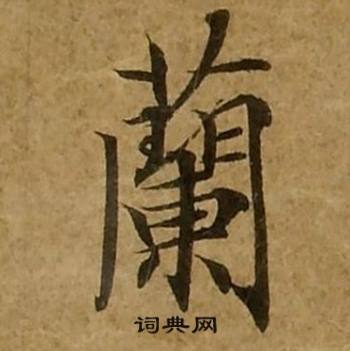 蘭
词典网